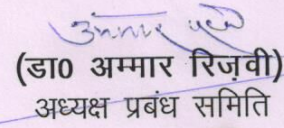 (डा0 अम्मार रिज़वी)
अध्यक्ष प्रबंध समिति